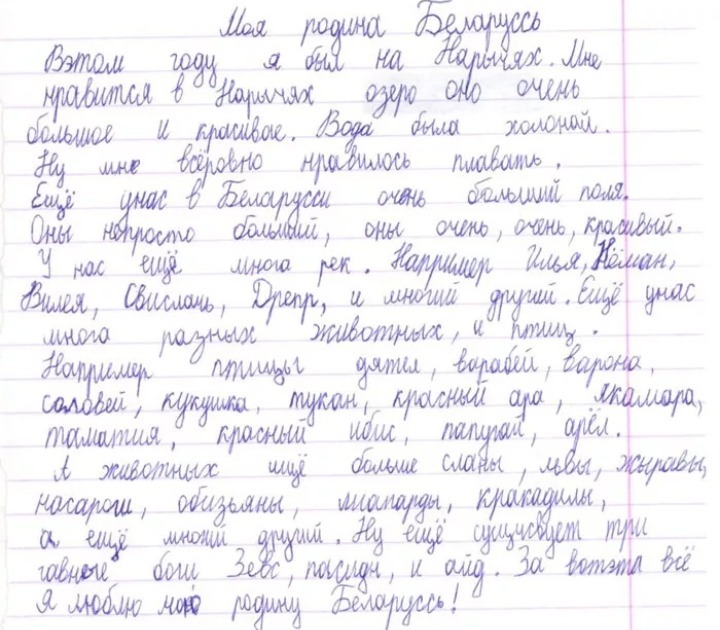 Моя родина Беларуссь
Вэтом году я был на Нарычях. Мне
нравится в Нарычях озеро оно очень
большое и красивае. Вода была холонай.
Ну мне всёровно нравилось плавать.
Ещё унас в Беларусси очень большии поля.
Оны непросто большый, оны очень, очень, красивый.
У нас ещё много рек. Например Илья, Нёман,
Вилея, Свислачь, Дрепр, и многий другий. Ещё унас
много разных животных, и птиц.
Например птицы дятел, варабей, варона,
саловей, кукушка, тукан, красный ара, якамара,
таматия, красный ибис, папугай, арёл.
А животных ищё больше сланы, львы, жыравы,
насароги, обизьяны, лиапарды, кракадилы,
а ещё многий другий. Ну ещё сущиствует три
гавные боги Зевс, пасидн, и аид. За вотэта всё
я люблю мою родину Беларуссь!